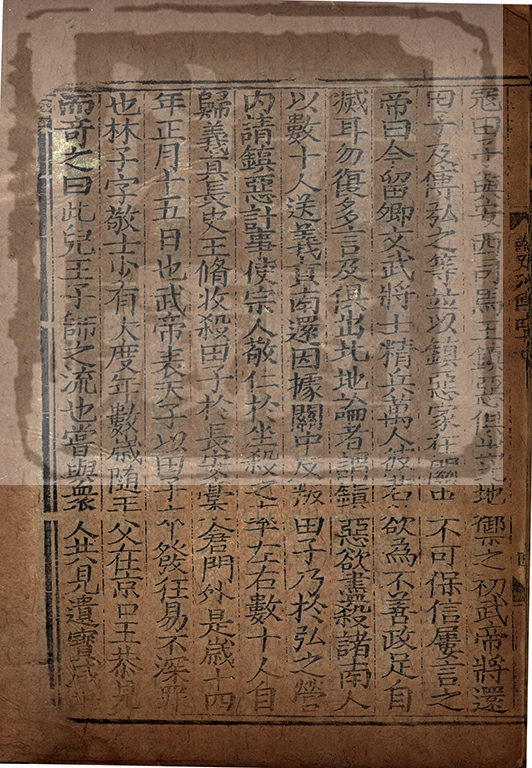 寇田子與安西司馬王鎮惡俱出北地禦之初武帝將還
田子及傅弘之等並以鎮惡家在關中不可保信屢言之
帝曰今留卿文武將士精兵萬人彼若欲為不善政足自
滅耳勿復多言及俱出北地論者謂鎮惡欲盡殺諸南人
以數十人送義真南還因據關中反叛田子乃於弘之營
內請鎮惡計事使宗人敬仁於坐殺之率左右數十人自
歸義真長史王脩收殺田子於長安稾倉門外是歲十四
年正月十五日也武帝表天子以田子卒發狂易不深罪
也林子字敬士少有大度年數歲隨王父在京口王恭見
而奇之曰此兒王子師之流也嘗與眾人共見遺寶咸